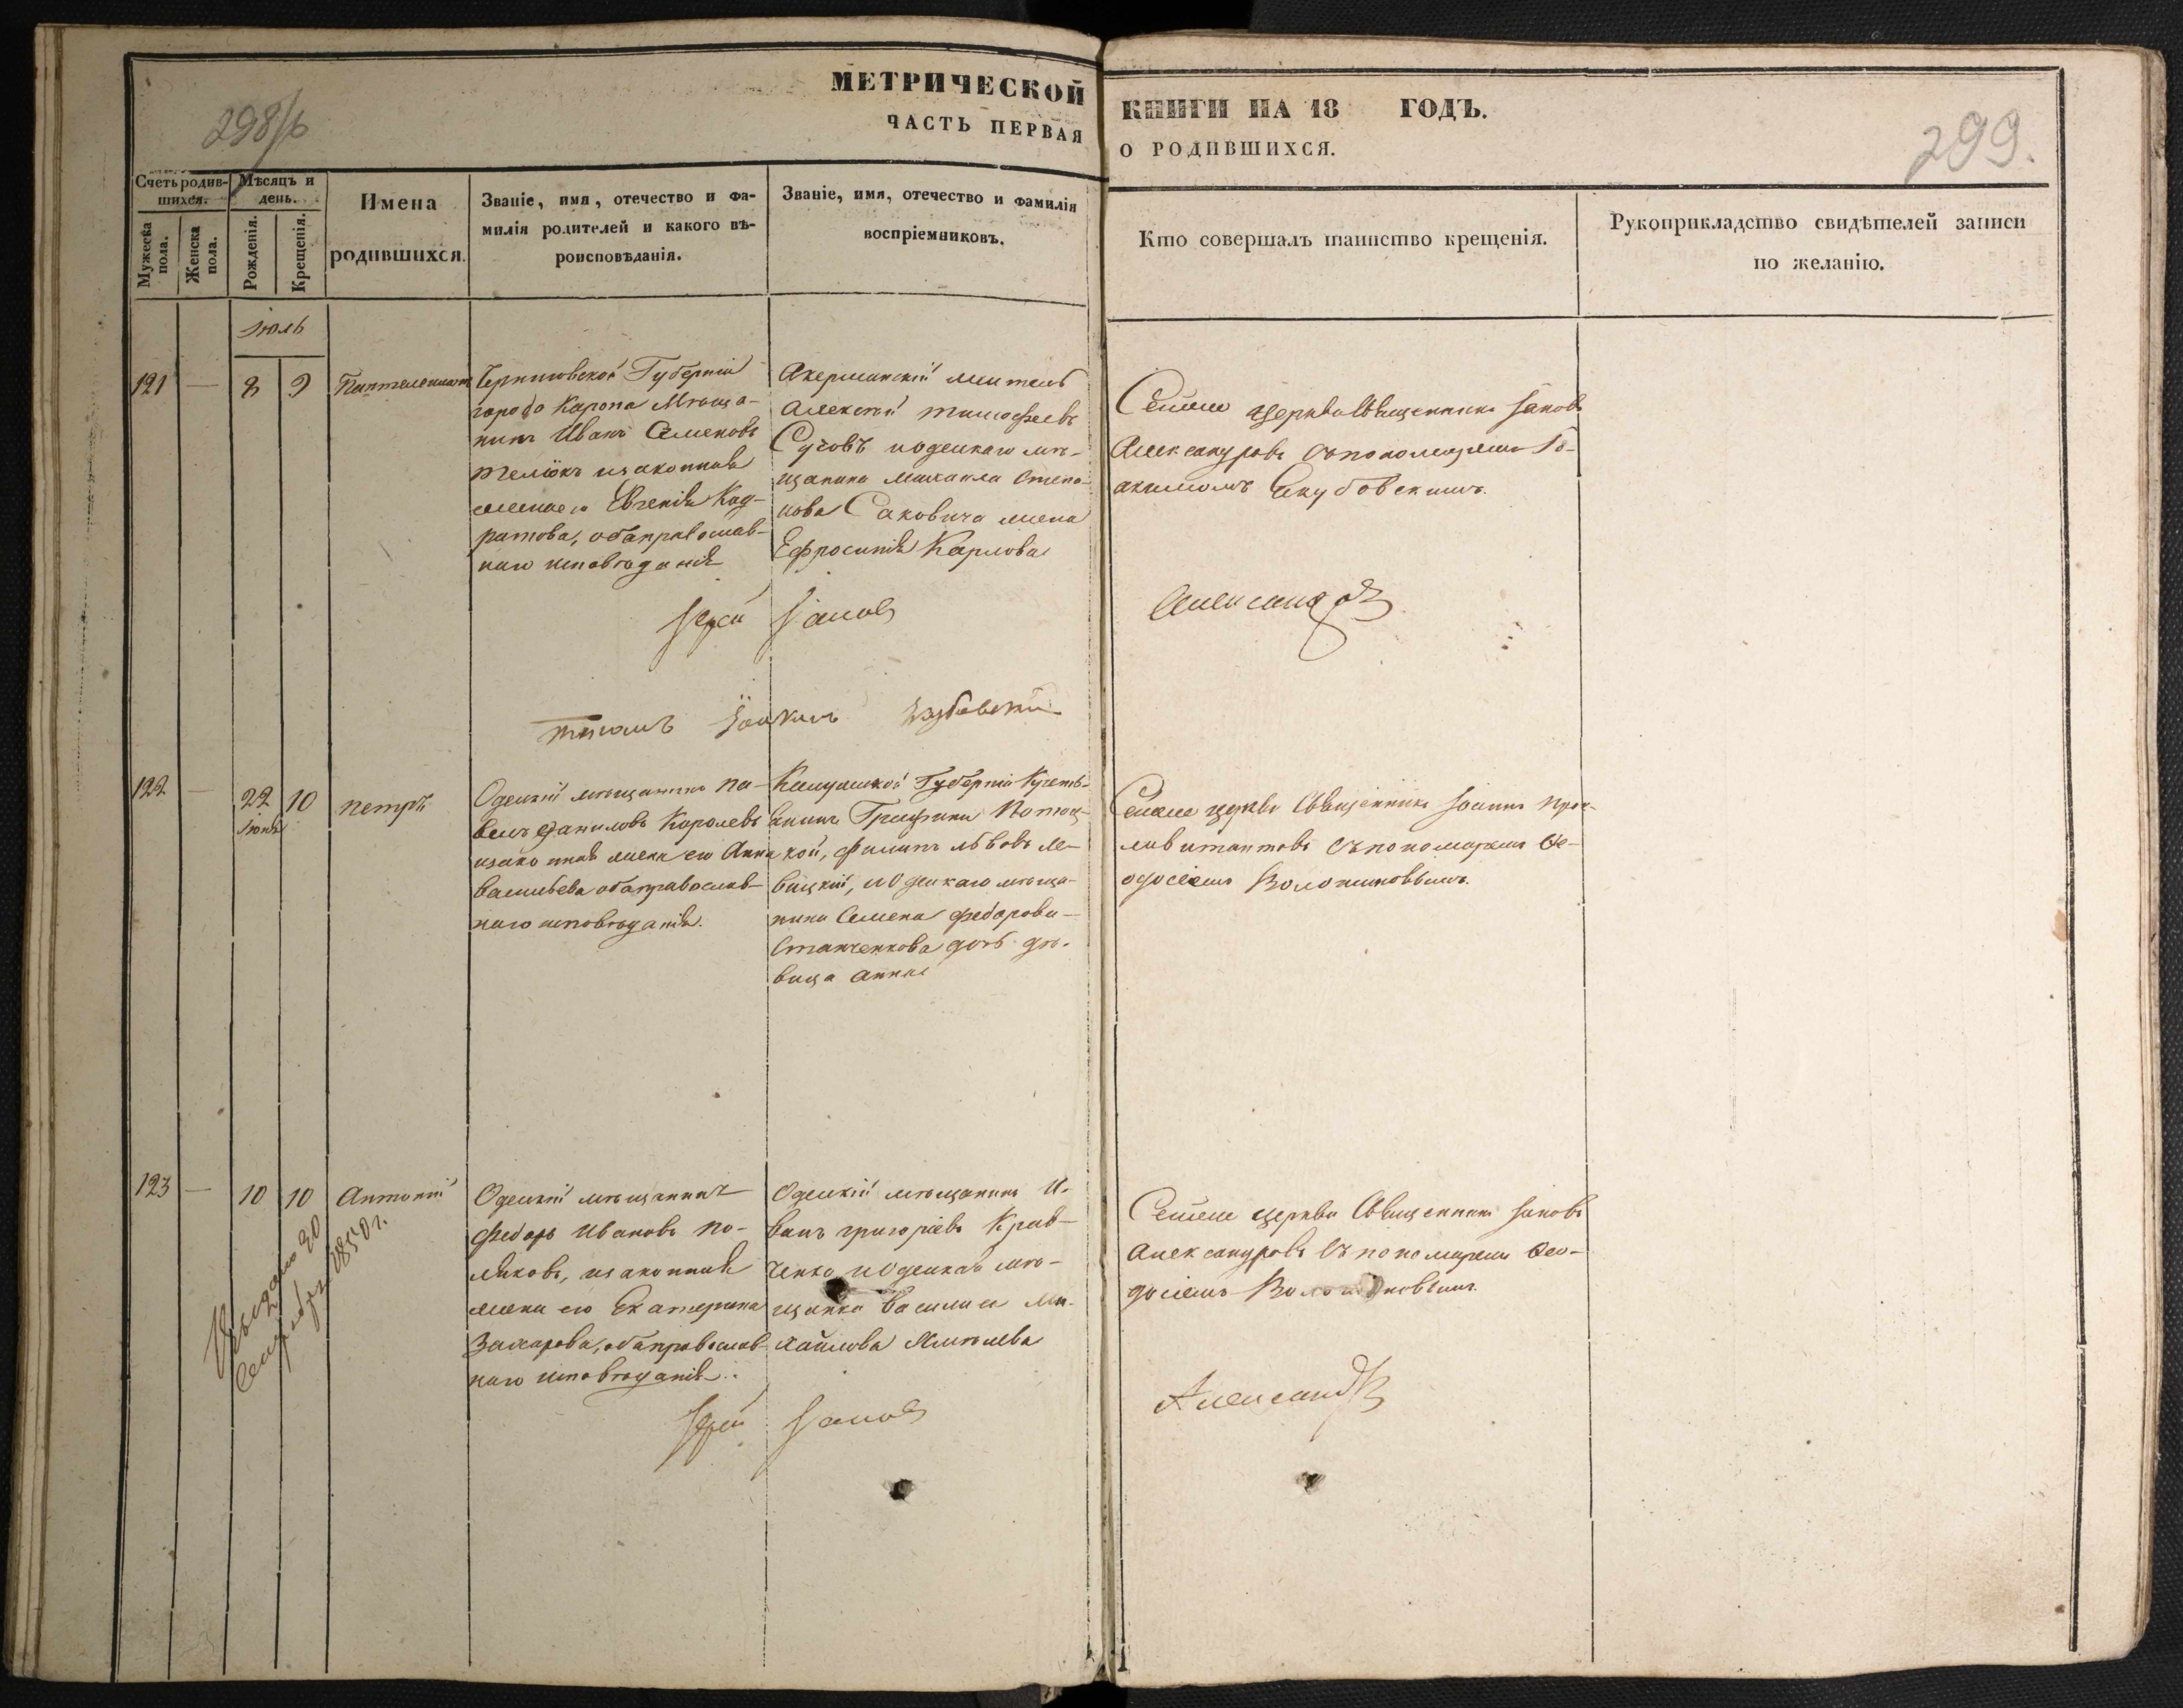 298/б
МЕТРИЧЕСКОЙ
ЧАСТЬ ПЕРВАЯ
КНИГИ НА 18 ГОДЪ.
О РОДИВШИХСЯ.
299.
Счетъ родив-
шихся.
Мужеска пола.
Женска пола.
Мѣсяцъ и
день.
Рожденія.
Крещенія.
Имена
родившихся.
Званіе, имя, отечество и фа-
милія родителей и какого вѣ-
роисповѣданія.
Званіе, имя, отечество и фамилія
воспріемниковъ.
Кто совершалъ таинство крещенія.
Рукоприкладство свидѣтелей записи
по желанію.
Іюль
121 — 8 9 Пантелеимонъ
Черниговской Губерніи
города Каропа Мѣща-
нинъ Иванъ Семеновъ
изаконная
жена его Евгенія Кад-
ратова, оба православ-
наго исповѣданія
Акерманскій житель
Алексѣй тимофѣевъ
Сусовъ иодескаго мѣ-
щанина Михаила Степа-
нова Саковича жена
Ефросинія Карлова
Сеѧже церкви Священникъ Іаковъ
Александровъ съ пономаремъ Іо-
акимомъ Якубовскимъ.
Іерей Іаковъ
Александровъ
Іоакимъ Якубовскій
122 — 22 10 петръ
Іюня
Одескій мѣщанинъ Па-
велъ Даниловъ Королевъ
изаконная жена его Анна
Васильева оба православ-
наго исповѣданія.
Калужской Губерніи
Графини Потоц-
кой, филипъ львовъ Ле-
вицкій, иОдескаго мѣща-
нина Семена федорова
Станченкова дочь дѣ-
вица Анна
церкви Священникъ Іоаннъ
съ пономаремъ Ѳе-
одосіемъ Волошиновымъ.
123 — 10 10 Антоній
Одескій мѣщанинъ
Федоръ Ивановъ По-
ляковъ, изаконная
жена его Екатерина
Захарова, оба православ-
наго исповѣданія.
Одескій мѣщанинъ И-
ванъ григоріевъ Крав-
ченко иОдеская мѣ-
щанка Василиса Ми-
хайлова
церкви Священникъ Іаковъ
Александровъ съ пономаремъ Ѳео-
досіемъ Волошиновымъ.
Выдано 20
Сентября 1850 г.
Іерей Іаковъ
Александровъ